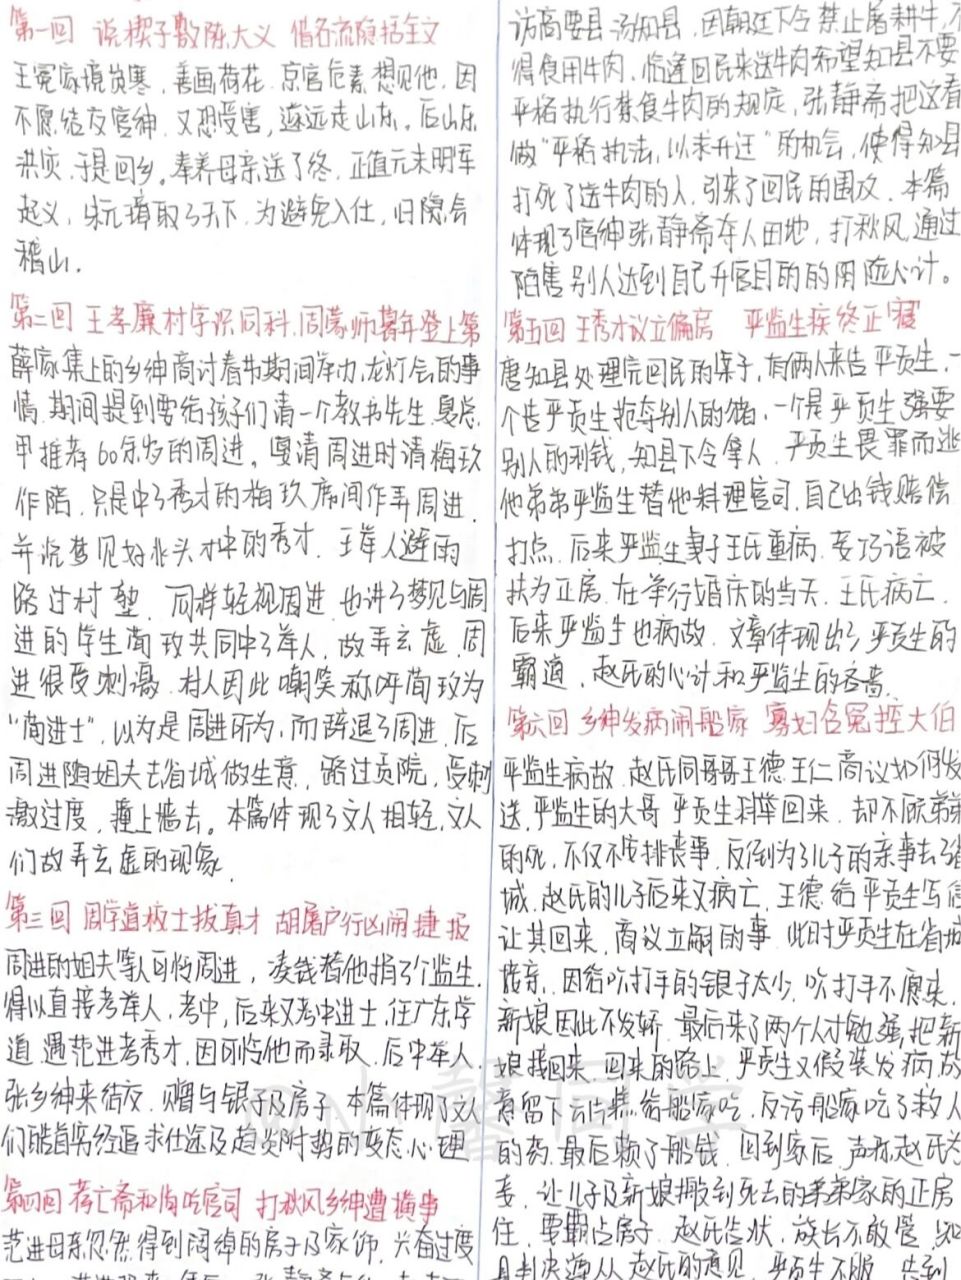 第一回 说楔子敷陈大义 借名流隐括全文
王冕家境贫寒,善画荷花,京官危素想见他,因
不愿结友官绅,又恐受害,遂远走山东。后山东
洪灾,于是回乡。奉养母亲送了终,正值元末明军
起义,朱元璋取了天下,为避免入仕,归隐会
稽山。
第二回 王孝廉村学识同科 周蒙师暮年登上第
薛家集上的乡绅商讨春节期间举办龙灯会的事
情,期间提到要给孩子们请一个教书先生,夏总
甲推荐60余岁的周进。宴请周进时请梅玖
作陪,只是中了秀才的梅玖席间作弄周进,
并说梦见好兆头才中的秀才,王举人避雨
路过村塾,同样轻视周进,也讲了梦见与周
进的学生荀玫共同中了举人,故弄玄虚,周
进很受刺激,村人因此嘲笑称呼荀玫为
“荀进士”,以为是周进所为,而辞退了周进,后
周进随姐夫去省城做生意,路过贡院,受刺
激过度,撞上墙去。本篇体现了文人相轻,文人
们故弄玄虚的现象。
第三回 周学道校士拔真才 胡屠户行凶闹捷报
周进的姐夫等人可怜周进,凑钱替他捐了个监生,
得以直接考举人,考中,后来又考中进士,任广东学
道,遇范进考秀才,因可怜他而录取,后中举人,
张乡绅来结友,赠与银子及房子,本篇体现了文人
们皓首穷经追求仕途及趋炎附势的变态心理
第四回 荐亡斋和尚吃官司 打秋风乡绅遭横事
范进母亲忽然得到阔绰的房子及家饰,兴奋过度
访高要县汤知县,因朝廷下令禁止屠耕牛,不
得食用牛肉,恰逢回民来送牛肉希望知县不要
严格执行禁食牛肉的规定,张静斋把这看
做“严格执法,以求升迁”的机会,使得知县
打死了送牛肉的人,引来了回民的围攻,本篇
体现了官绅张静斋夺人田地,打秋风,通过
陷害别人达到自己升官目的的阴险心计。
第五回 王秀才议立偏房 严监生疾终正寝
唐知县处理完回民的案子,有俩人来告严贡生,一
个告严贡生抢夺别人的猪,一个是严贡生强要
别人的利钱,知县下令拿人,严贡生畏罪而逃
他弟弟严监生替他料理官司,自己出钱赔偿
打点,后来严监生妻子王氏重病,妾巧语被
扶为正房,在举行婚庆的当天,王氏病亡,
后来严监生也病故,文章体现出了严贡生的
霸道,赵氏的心计和严监生的吝啬。
第六回 乡绅发病闹船家 寡妇含冤控大伯
严监生病故,赵氏同哥哥王德王仁商议如何发
送,严监生的大哥严贡生科举回来,却不顾弟弟
的死,不仅不安排丧事,反倒为了儿子的亲事去了省
城,赵氏的儿子后来又病亡,王德给严贡生写信
让其回来,商议立嗣的事,此时严贡生在省城
接亲,因给吹打手的银子太少,吹打手不愿来,
新娘因此不发轿,最后来了两个人才勉强把新
娘接回来,回来的路上,严贡生又假装发病,故
意留下云片糕给船家吃,反污船家吃了救人
的药,最后赖了船钱,回到家后,声称赵氏为
妾,让儿子及新娘搬到死去的弟弟家的正房
住,要霸占房子,赵氏告状,族长不敢管,知
县判决遵从赵氏的意见,严贡生不服,告到